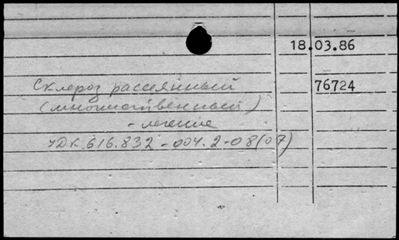 18.03.86
Склероз рассеянный
76724
(множественный)
- лечение
УДК 616.832-004.2-08(07)